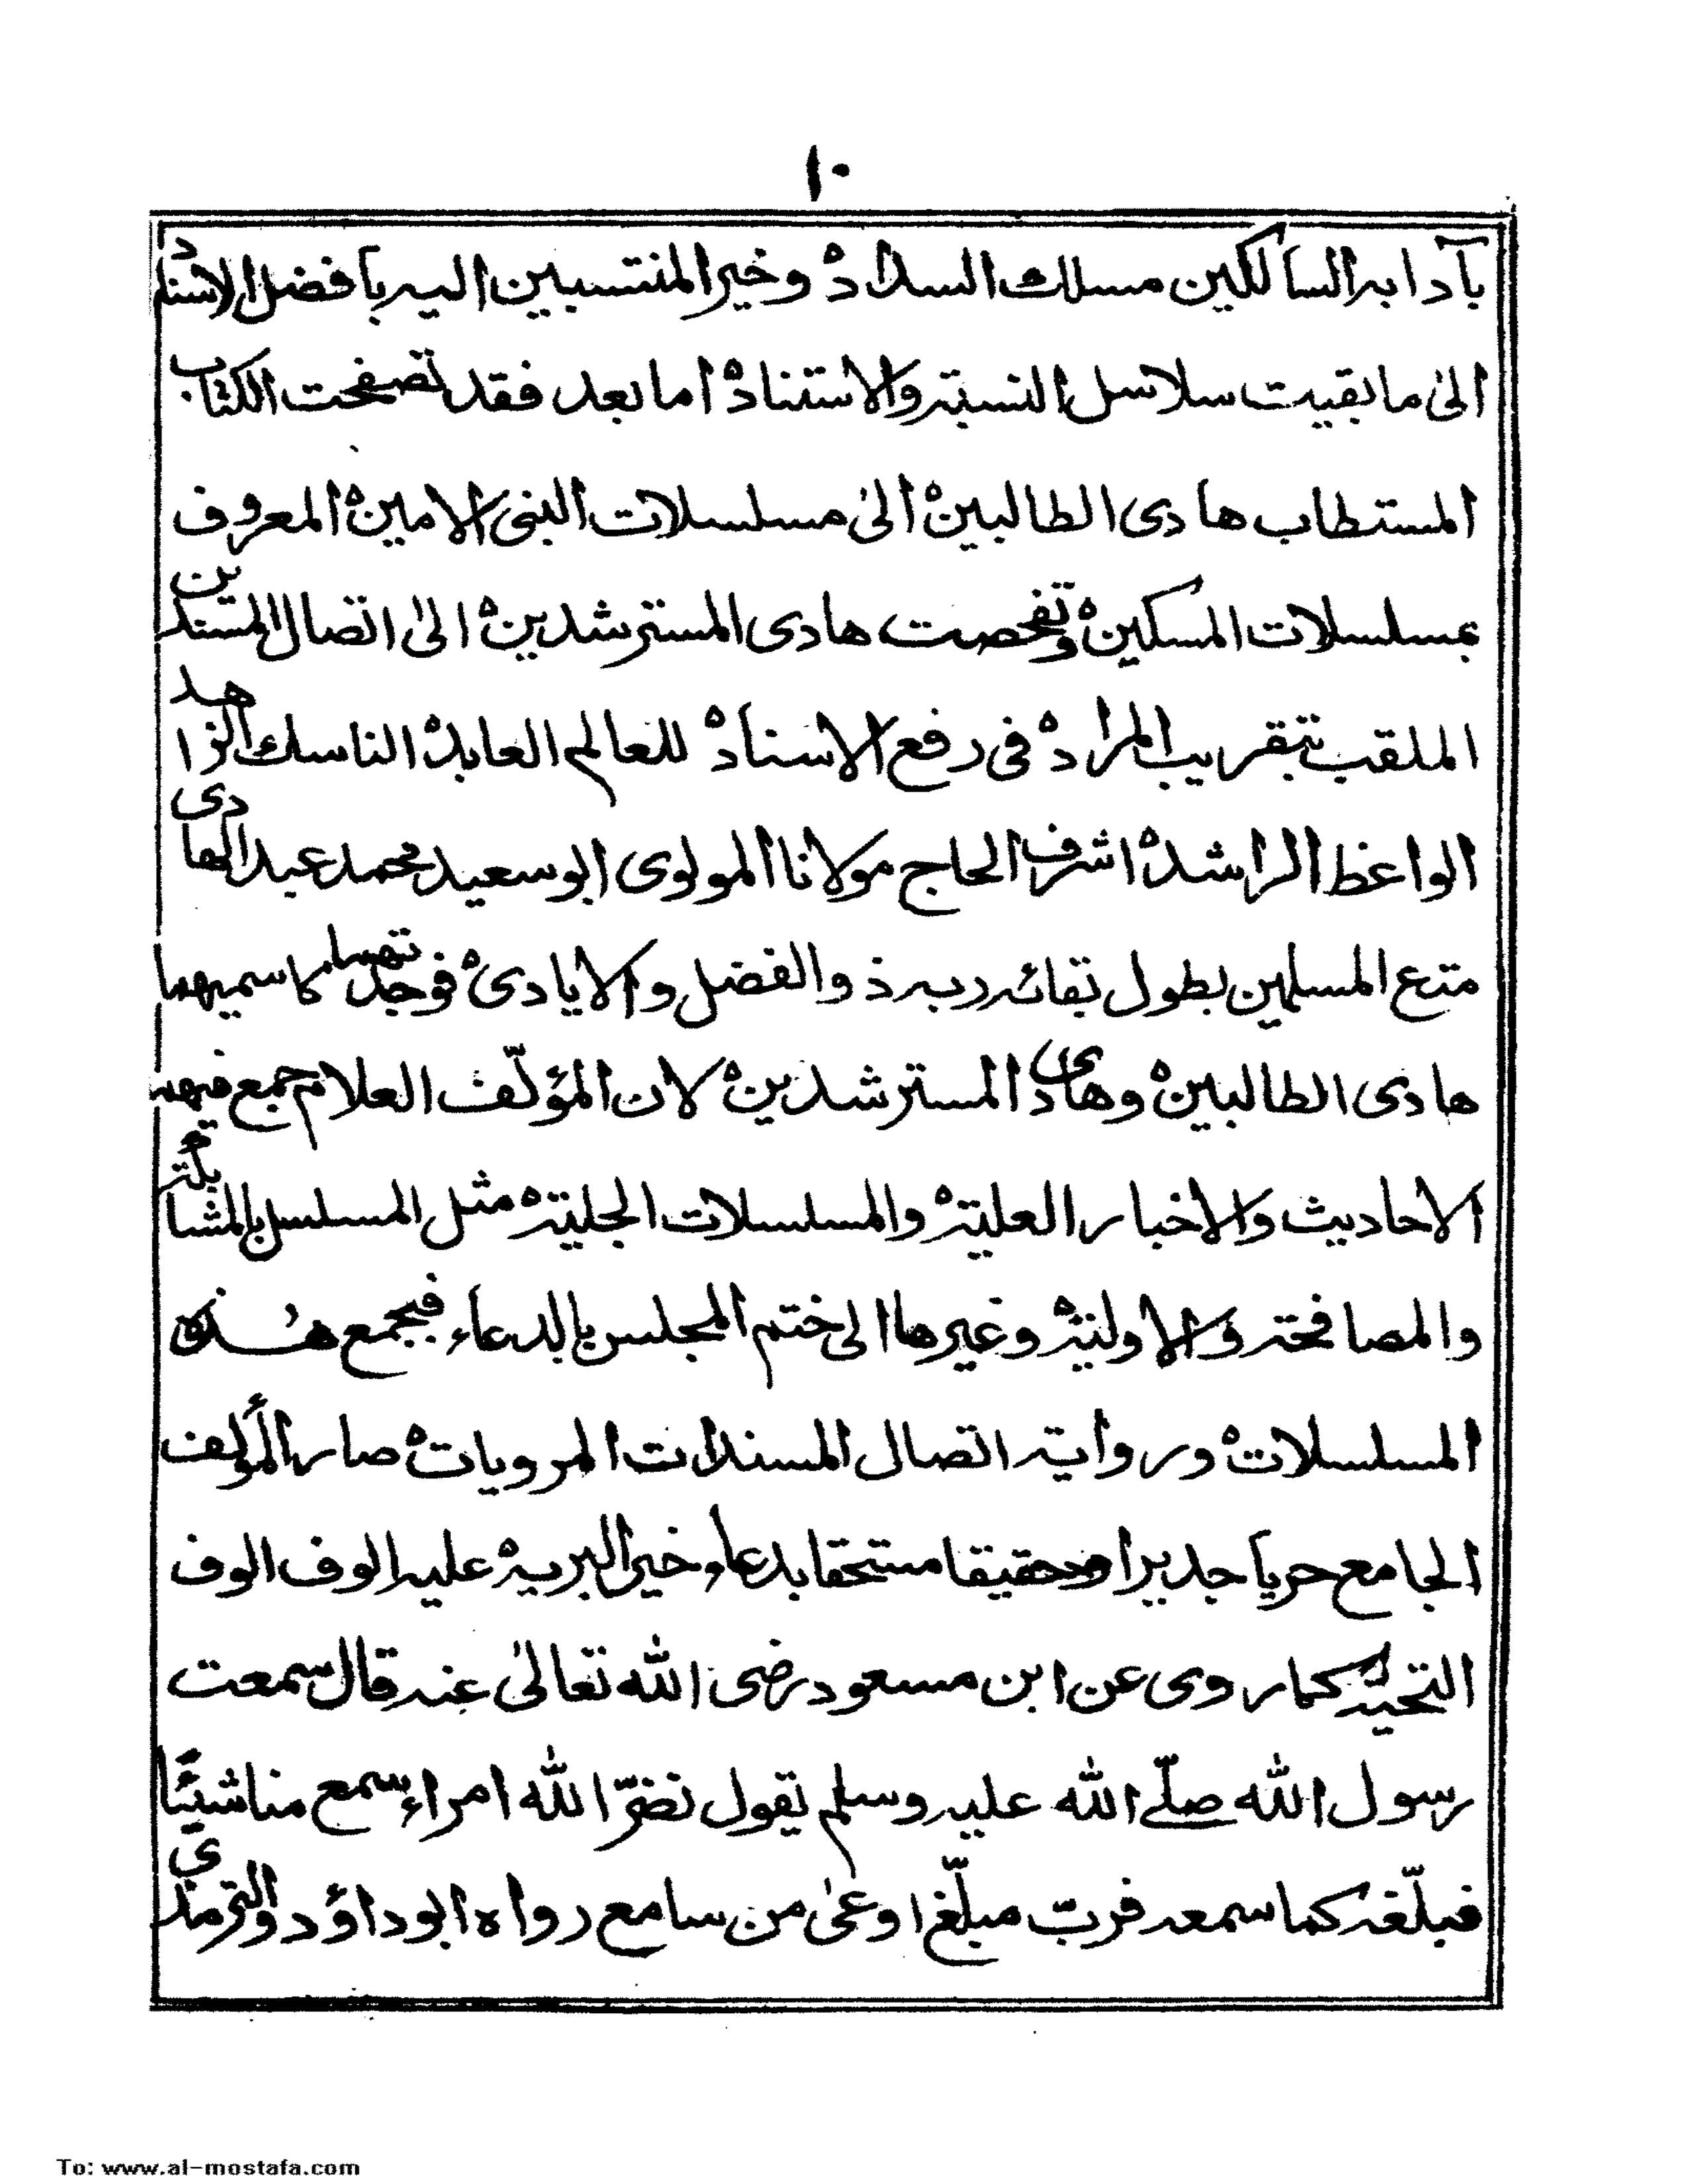 ١٠
بآدابه السالكين مسلك السداد ه وخير المنتسبين اليه بافضل الاسناد
الىٰ ما بقيت سلاسل النسبة والاستناد ه اما بعد فقد تصفحت الكتاب
المستطاب هادى الطالبين ه الىٰ مسلسلات النبى الامين ه المعروف
بمسلسلات المسكين ه وتفحصت هادى المسترشدين ه الىٰ اتصال المسندين
الملقب بتقريب المراد ه فى رفع الاسناد ه للعالم العابد ه الناسك الزاهد
الواعظ الراشد ه اشرف الحاج مولانا المولوى ابو سعيد محمد عبد الهادى
متع المسلمين بطول بقائه ربه ذو الفضل والايادى ه فوجدتهما كاسميهما
هادى الطالبين ه وهادى المسترشدين ه لان المؤلّف العلام جمع فيهما
الاحاديث والاخبار العلية ه والمسلسلات الجلية ه مثل المسلسل بالمشابكة
والمصافحة والاولية ه وغيرها الى ختم المجلس بالدعاء فبجمع هٰذه
المسلسلات ه ورواية اتصال المسندات المرويات ه صار المؤلف
الجامع حريا جديرا وحقيقا مستحقا بدعاء خير البريه ه عليه الوف الوف
التحيّة كما روى عن ابن مسعود رضى الله تعالىٰ عنه قال سمعت
رسول الله صلّے الله عليه وسلم يقول نضّر الله امراء سمع منا شيئًا
فبلّغه كما سمعه فربّ مبلّغ اوعىٰ من سامع رواه ابو داؤد والترمذي
To: www.al-mostafa.com